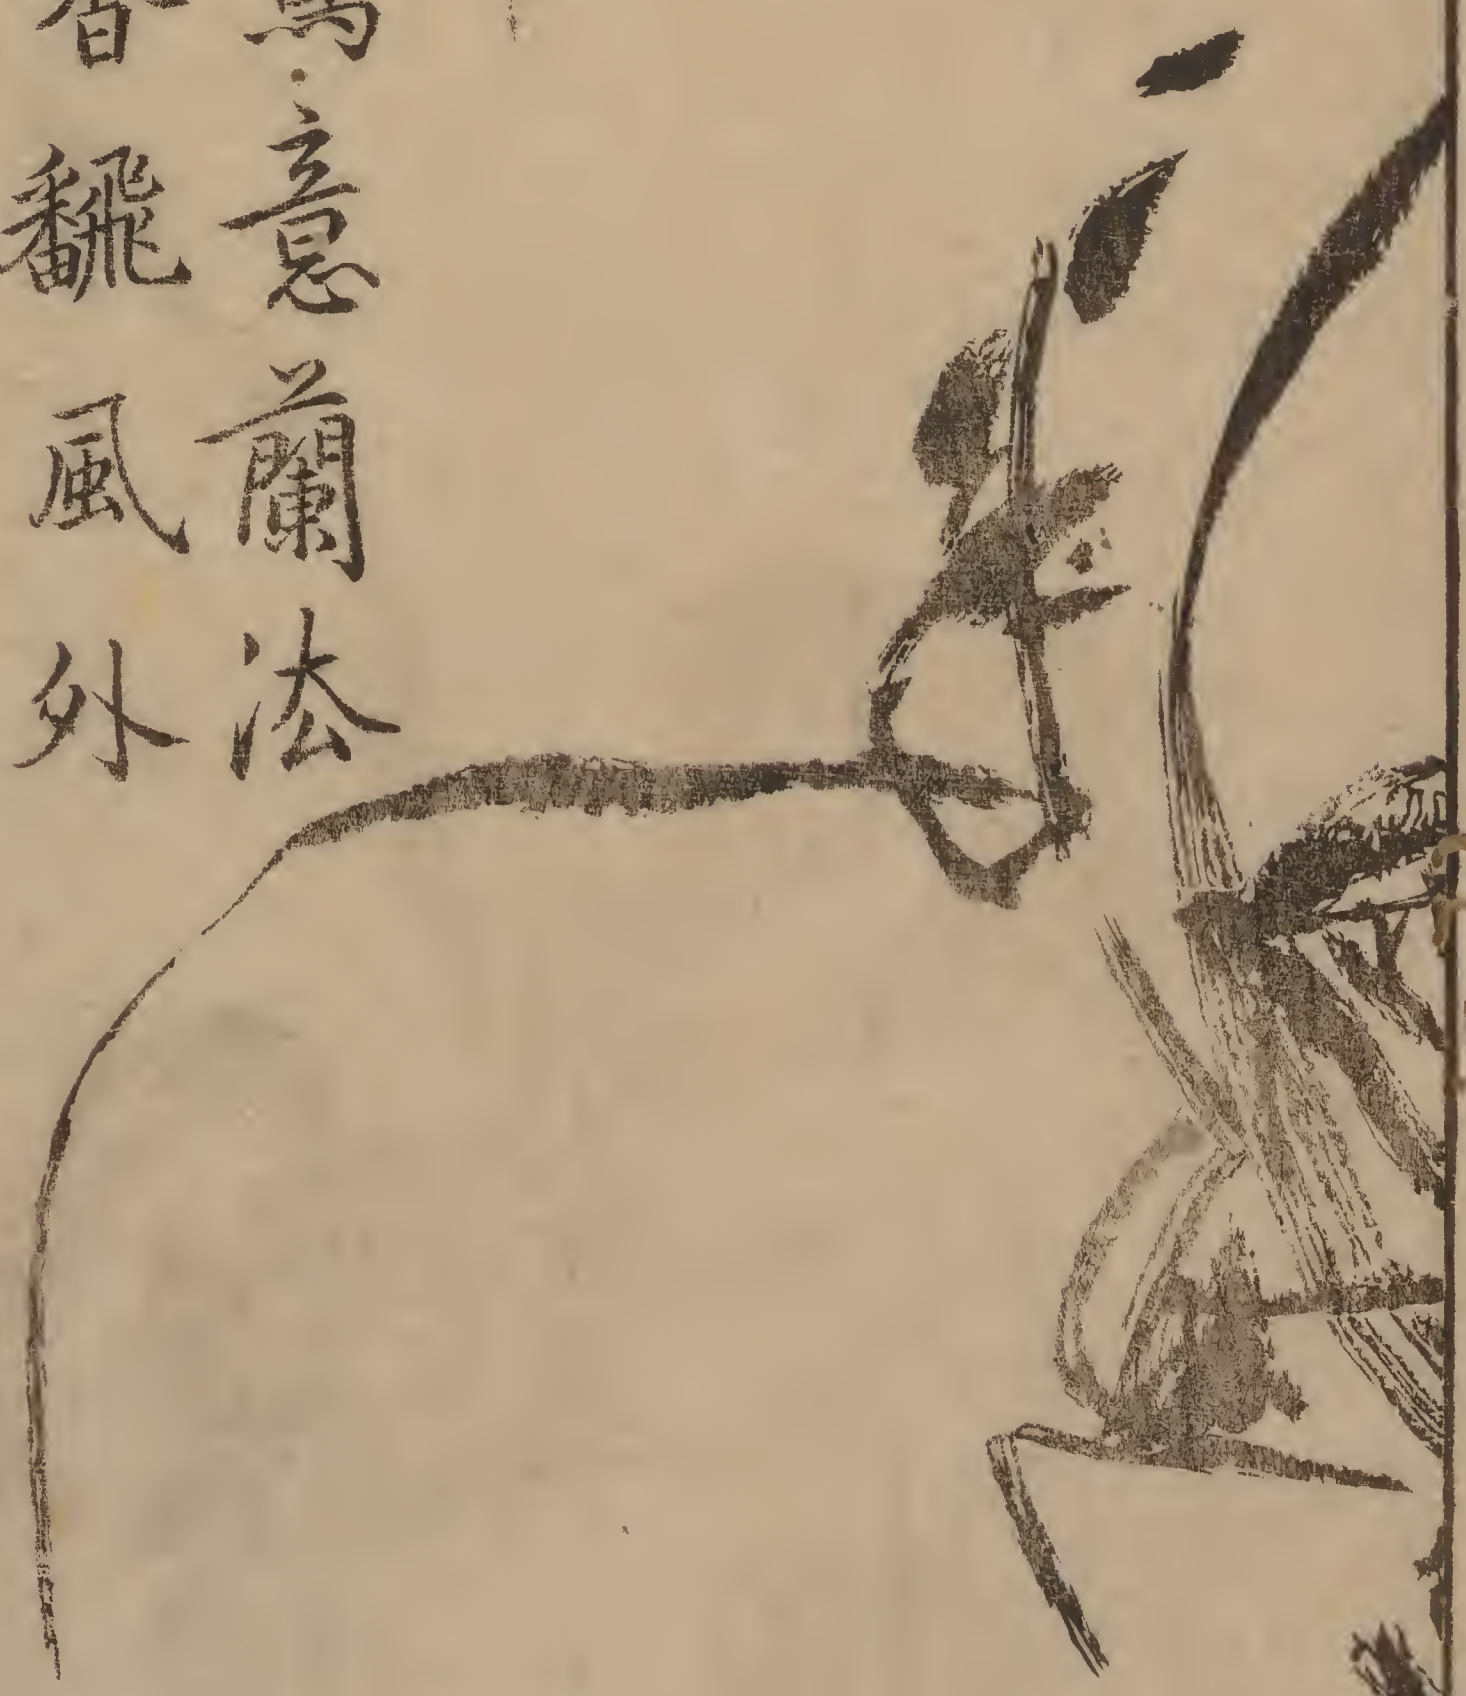 寫意蘭法
香飜風外